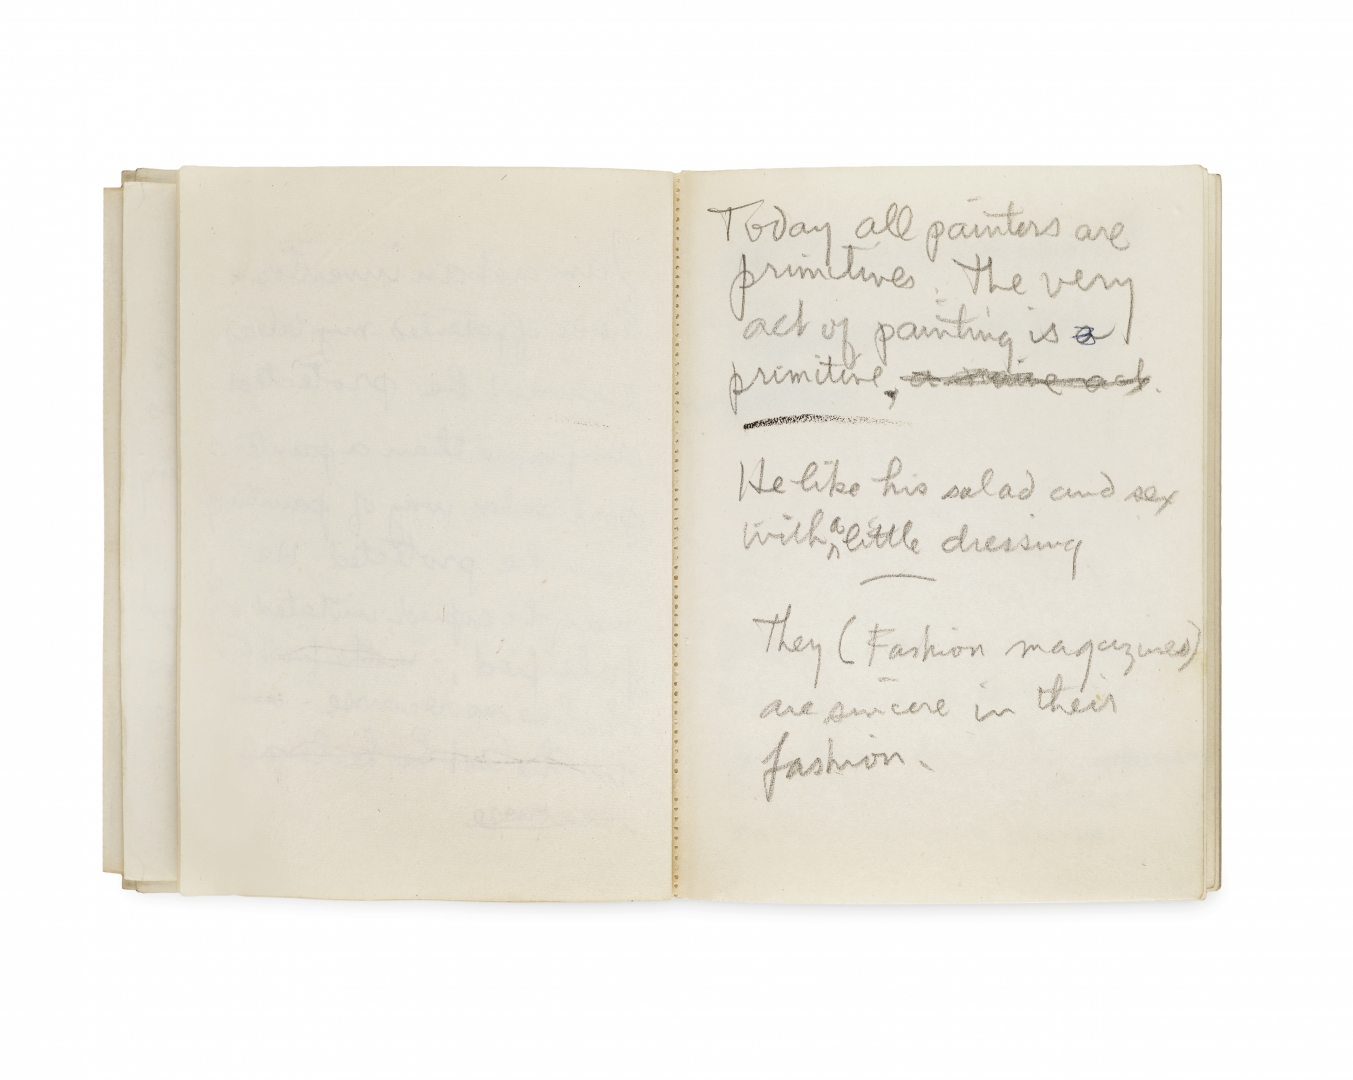 Today all painters are
primitives. The very
act of painting is a
primitive,
He like his salad and sex
with a little dressing
They (Fashion magazines)
are sincere in their
fashion.